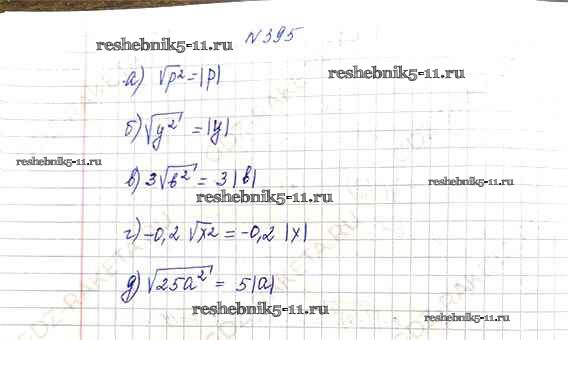 N 395
reshebnik5-11.ru
а) √p² = |p|
reshebnik5-11.ru
б) √y² = |y|
reshebnik5-11.ru
в) 3√в² = 3|в|
reshebnik5-11.ru
reshebnik5-11.ru
г) -0,2 √x² = -0,2 |x|
д) √25a² = 5|a|
reshebnik5-11.ru
reshebnik5-11.ru